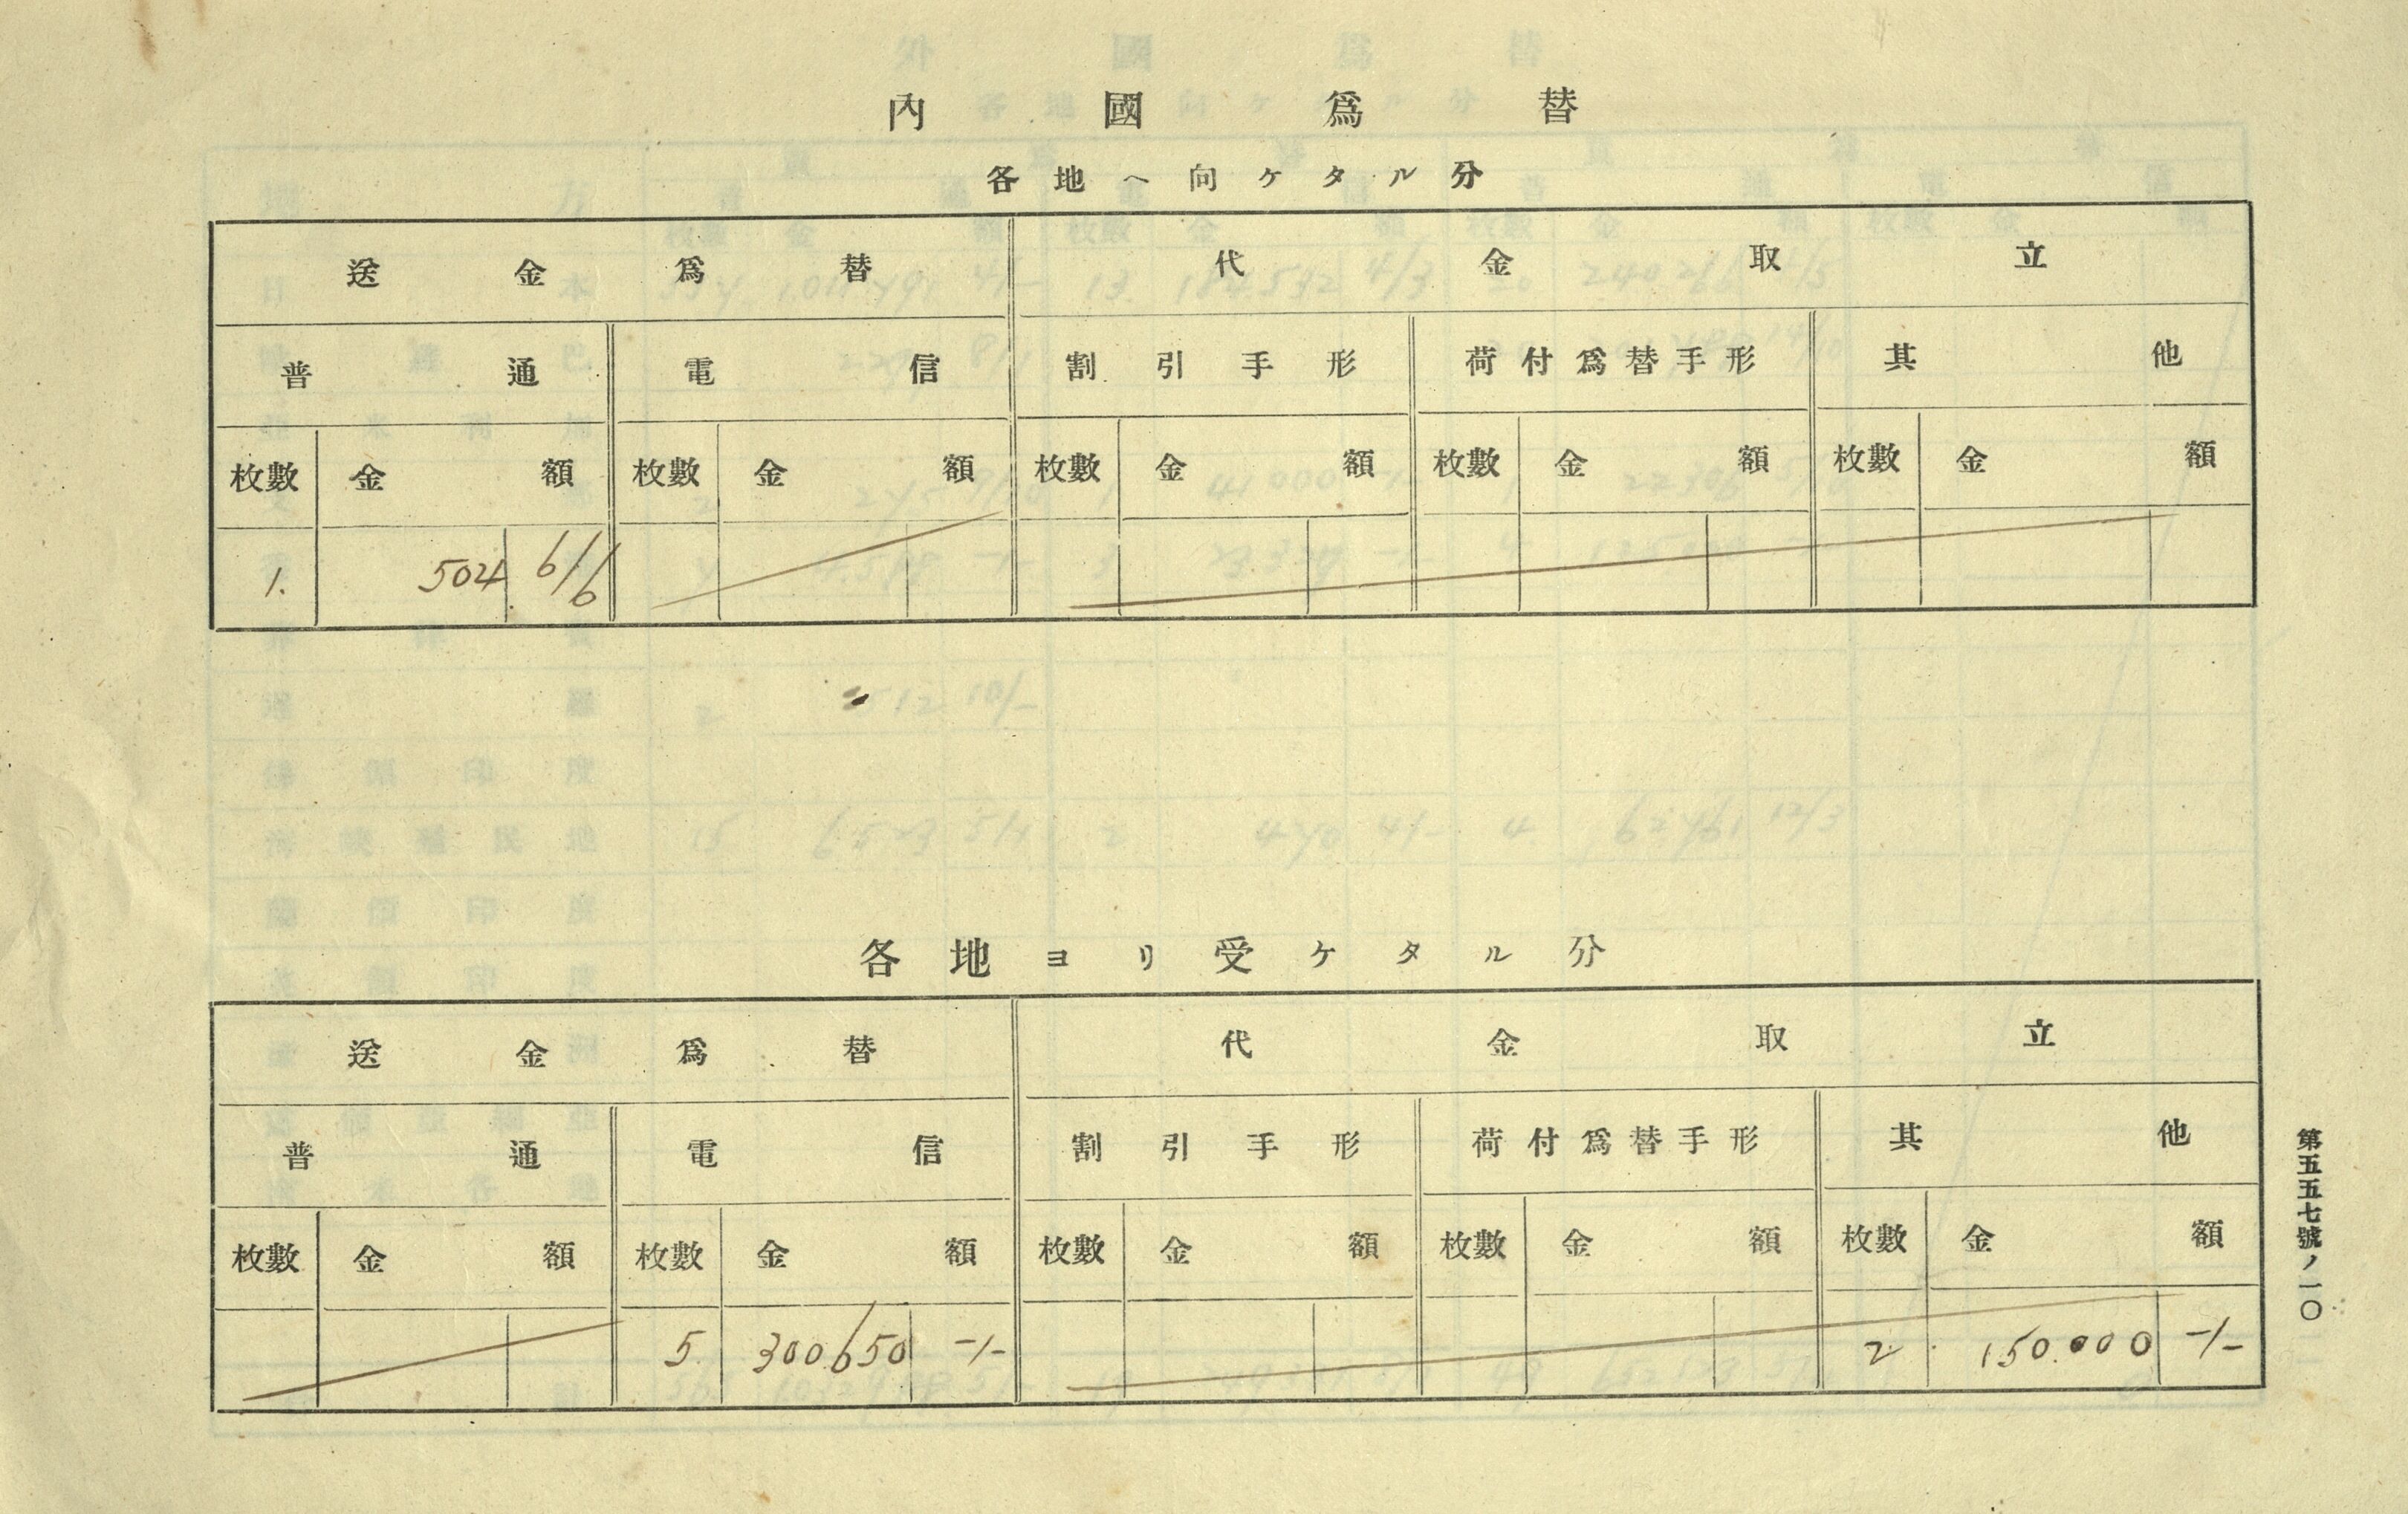 內國爲替
各地ヘ向ケタル分
送金爲替 代金取立
普通 電信 割引手形 荷付爲替手形 其他
枚數 金額 枚數 金額 枚數 金額 枚數 金額 枚數 金額
1. 504 6/6
各地ヨリ受ケタル分
送金爲替 代金取立
普通 電信 割引手形 荷付爲替手形 其他
枚數 金額 枚數 金額 枚數 金額 枚數 金額 枚數 金額
5. 300650 -/- 2. 150.000 -/-
第五五七號ノ一〇